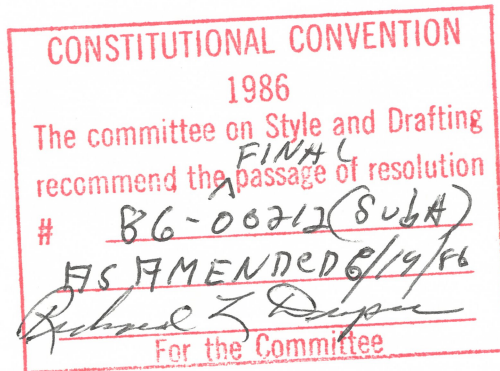 CONSTITUTIONAL CONVENTION
1986
The committee on Style and Drafting
FINAL
recommend the ^ passage of resolution
# 86-00212 (SubA)
AS AMENDED 6/19/86
Richard L
For the Committee